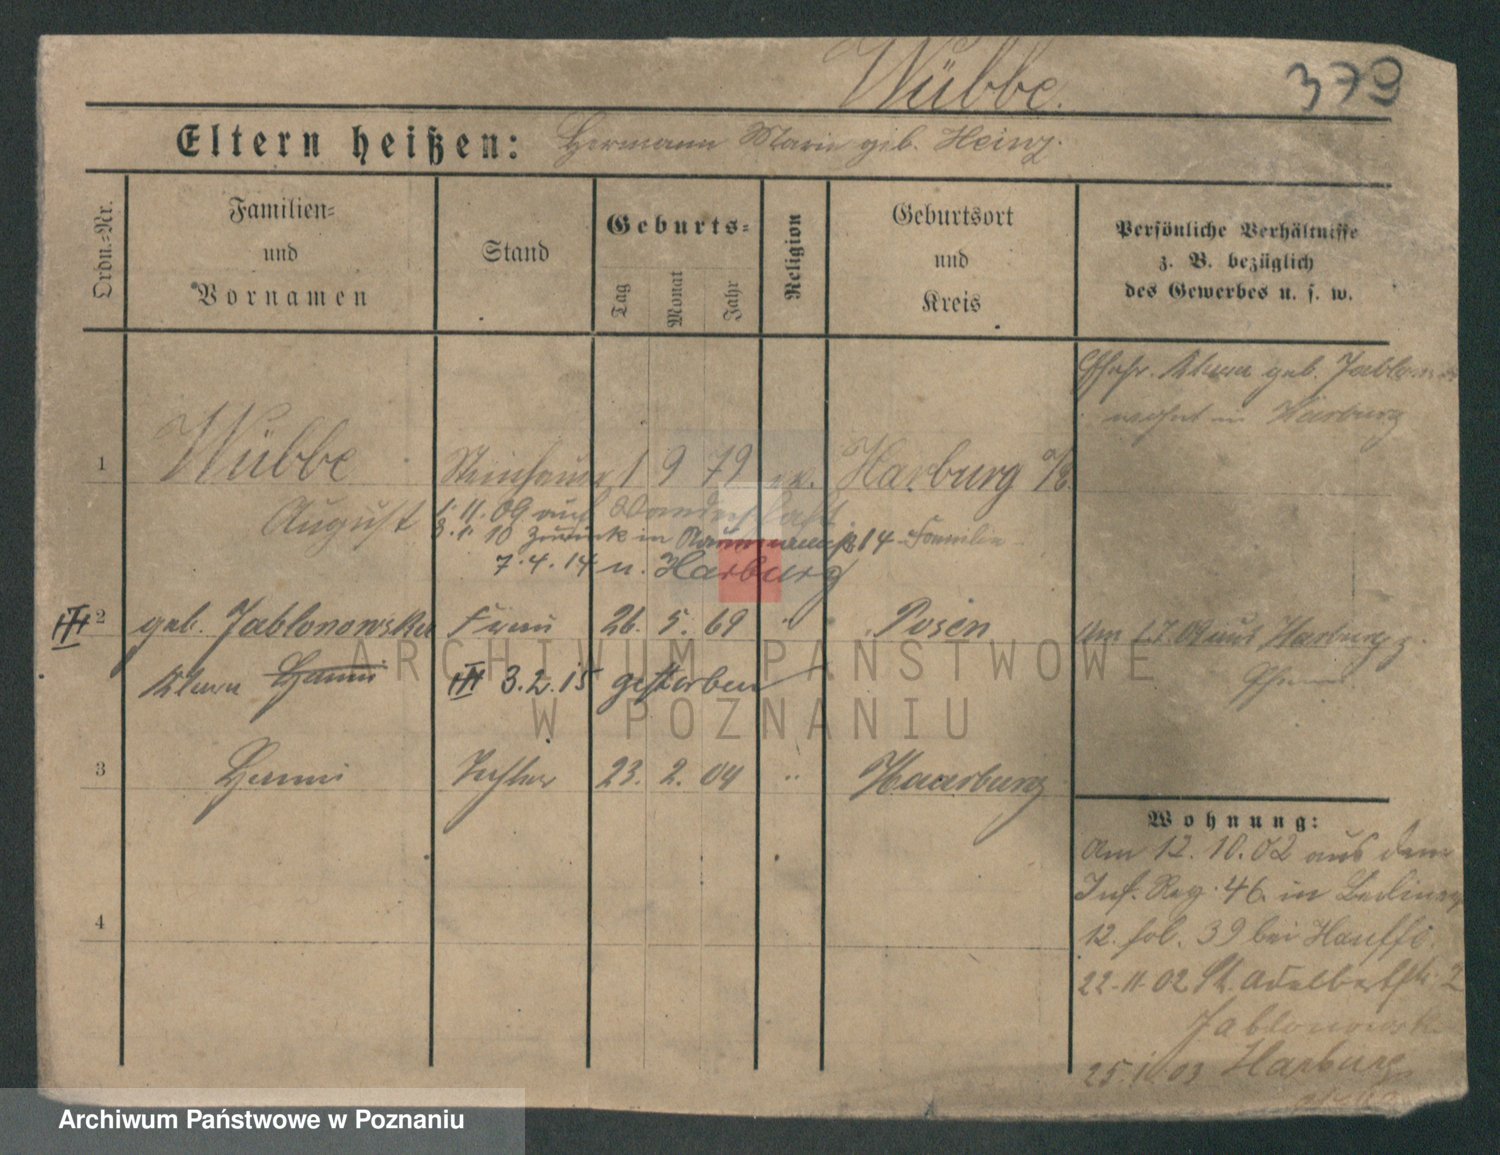 Wübbe.
379
Eltern heißen: Hermann Marie geb. Heinz.
Ordn.=Nr.
Familien= und Vornamen
Stand
Geburts=
Tag
Monat
Jahr
Religion
Geburtsort und Kreis
Persönliche Verhältnisse z. B. bezüglich des Gewerbes u. s. w.
Ehefr. Klara geb. Jablonow
wohnt in Harburg
1 Wübbe Steinhauer 1 9 79 ev. Harburg a/E.
August 1. 11. 09 auf Wanderschaft.
3. 1. 10 zurück in 14 Familie
7. 4. 14 n. Harburg
2 geb. Jablonowska Frau 26. 5. 69 " Posen
Am 1.7.09 aus Harburg z.
Klara Hanni 3. 2. 15 gestorben
3 Hanni Tochter 23. 2. 04 " Haarburg
4
Wohnung:
Am 12. 10. 02 aus dem
Inf. Reg. 46. in
12. 39 bei
22. 11. 02 St. Adelbertstr. 2
Jablonowsk
25. 03 Harburg
ARCHIWUM PAŃSTWOWE
W POZNANIU
Archiwum Państwowe w Poznaniu